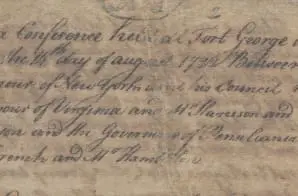 a Conference held at Fort George in
the day of august 173 Between
nour of New York and his Council
nour of Virginia and Mr Harrison and
son and the Governor of Pensilvania
french and Mr Hamilton